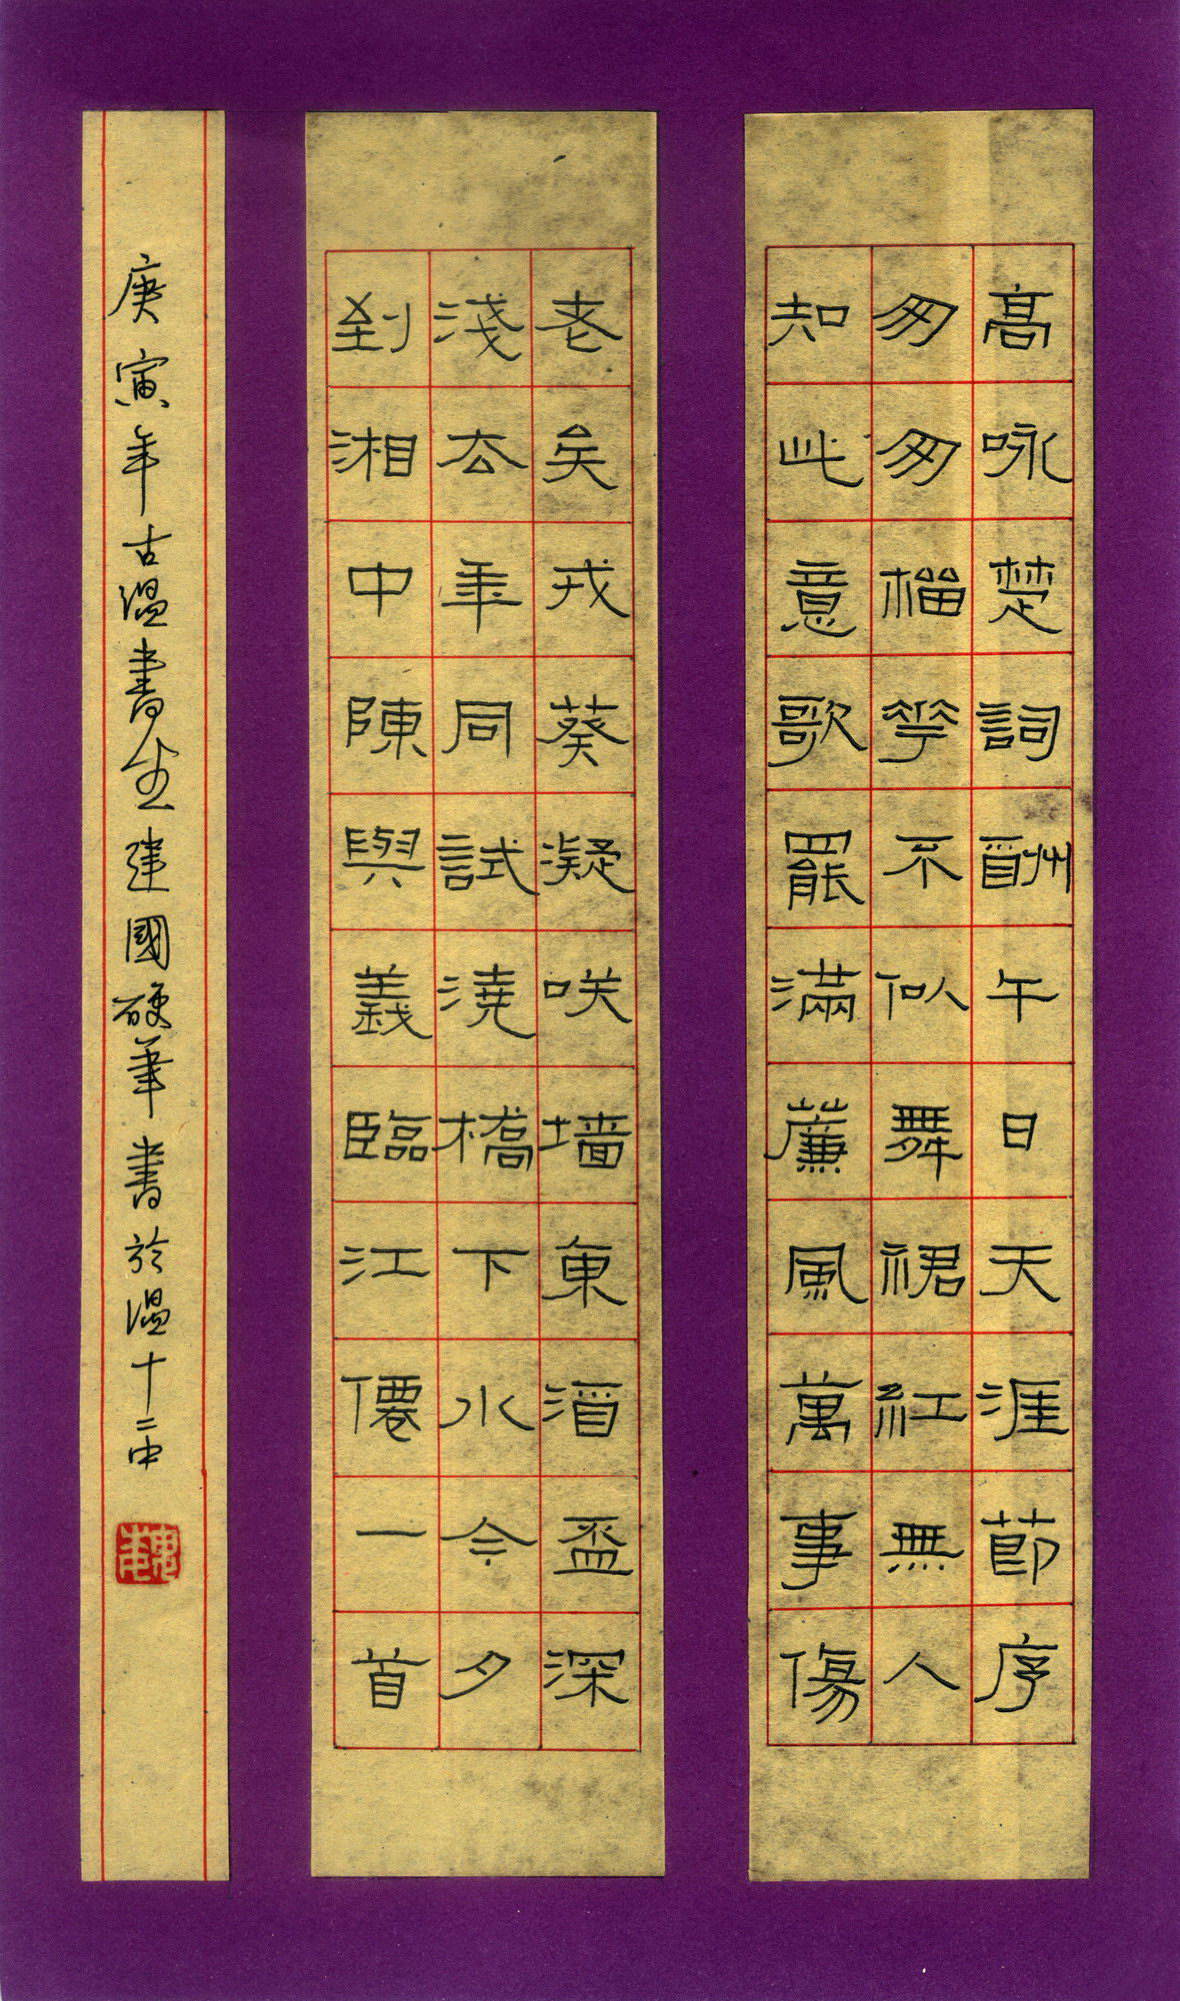 高咏楚詞酬午日天涯節序
匆匆榴花不似舞裙紅無人
知此意歌罷滿簾風萬事傷
老矣戎葵凝咲墙東酒盃深
淺去年同試澆橋下水今夕
到湘中陳與義臨江僊一首
庚寅年古溫書生建國硬筆書於溫十二中